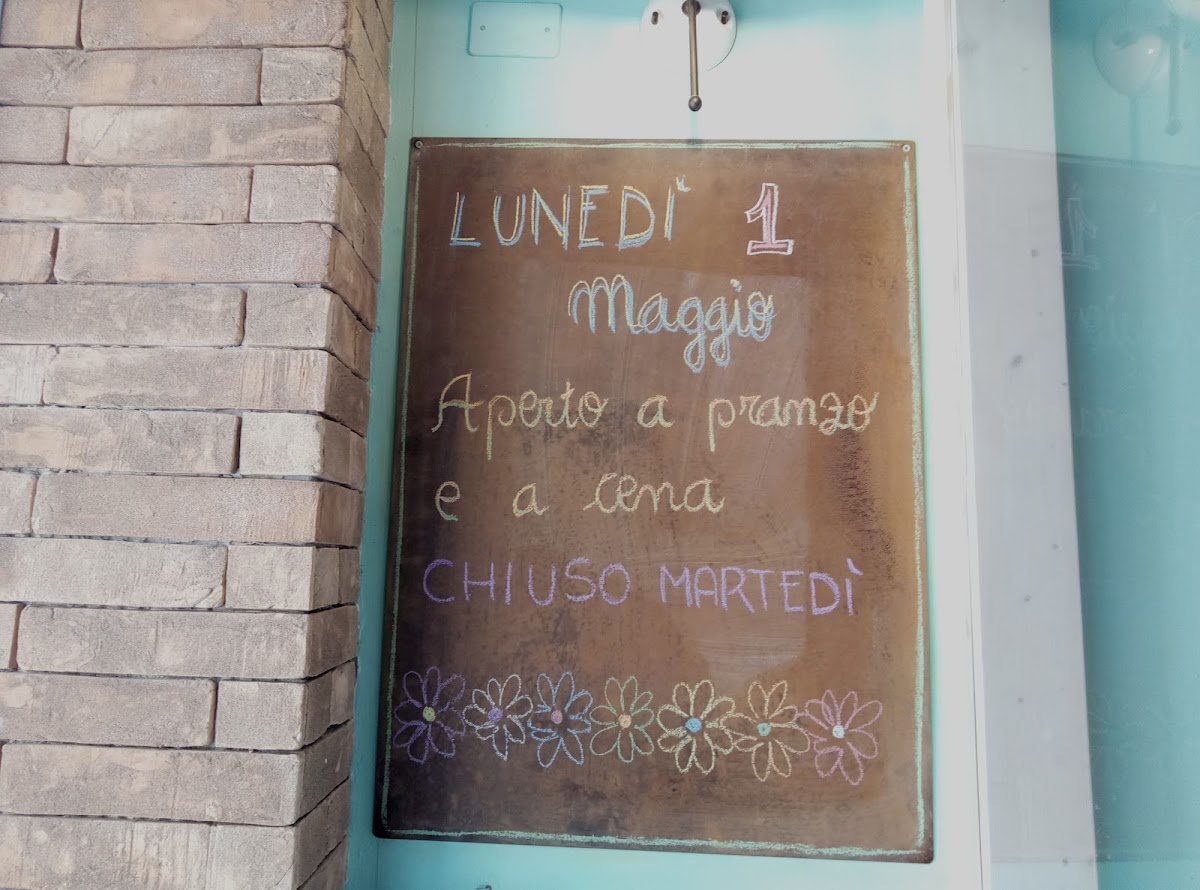 LUNEDÌ 1
Maggio
Aperto a pranzo
e a cena
CHIUSO MARTEDÌ